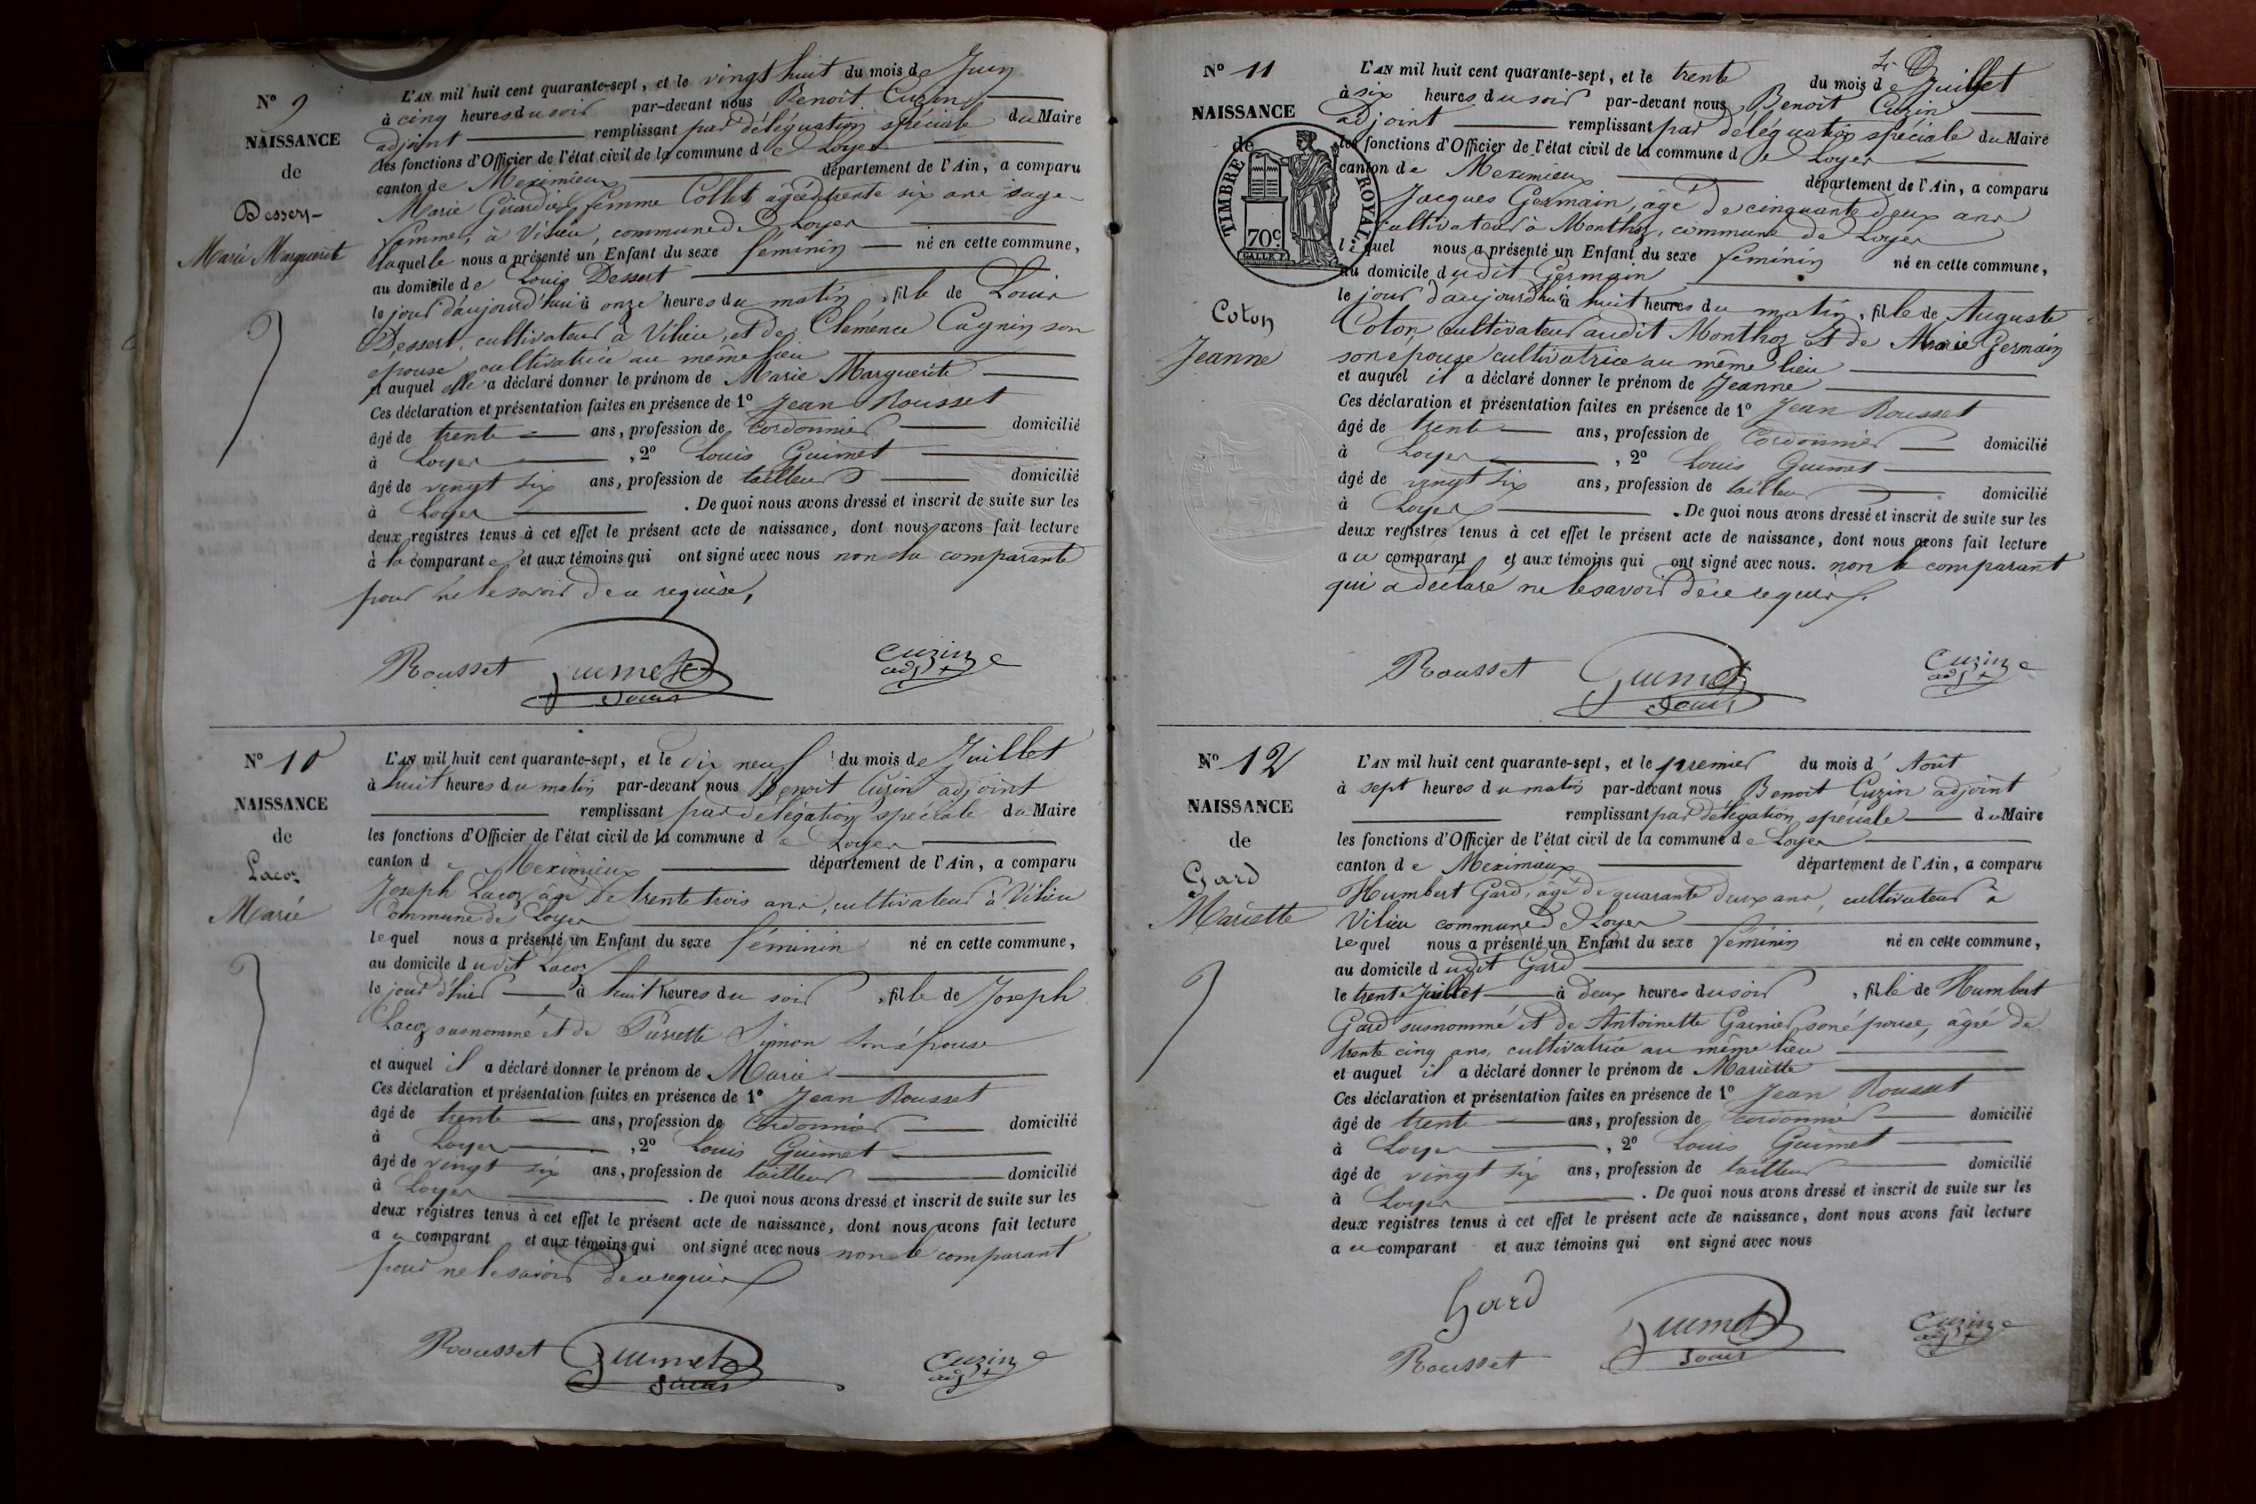 N° 9
NAISSANCE
de
Dessert
Marie Marguerite
L'AN mil huit cent quarante-sept, et le vingt huit du mois de Juin
à cinq heures du soir par-devant nous Benoit Cuzin
adjoint remplissant par délégation spéciale du Maire
les fonctions d'Officier de l'état civil de la commune de Loyer
canton de Meximieux département de l'Ain, a comparu
Marie Girardier femme Collet âgée de trente six ans sage-
femme, à Vilieu, commune de Loyer
laquelle nous a présenté un Enfant du sexe féminin né en cette commune,
au domicile de Louis Dessert
le jour d'aujourd'hui à onze heures du matin, fille de Louis
Dessert, cultivateur à Vilieu, et de Clémence Cagnin son
epouse cultivatrice au même lieu
et auquel elle a déclaré donner le prénom de Marie Marguerite
Ces déclaration et présentation faites en présence de 1° Jean Rousset
âgé de trente ans, profession de Cordonnier domicilié
à Loyer, 2° Louis Guimet
âgé de vingt six ans, profession de tailleur domicilié
à Loyer. De quoi nous avons dressé et inscrit de suite sur les
deux registres tenus à cet effet le présent acte de naissance, dont nous avons fait lecture
à la comparante et aux témoins qui ont signé avec nous non la comparante
pour ne le savoir de ce requise,
Rousset Guimet Louis Cuzin adjt
N° 10
NAISSANCE
de
Lacoz
Marie
L'AN mil huit cent quarante-sept, et le dix neuf du mois de Juillet
à huit heures du matin par-devant nous Benoit Cuzin adjoint
remplissant par délégation spéciale du Maire
les fonctions d'Officier de l'état civil de la commune de Loyer
canton de Meximieux département de l'Ain, a comparu
Joseph Lacoz âgé de trente trois ans, cultivateur à Vilieu
Commune de Loyer
lequel nous a présenté un Enfant du sexe féminin né en cette commune,
au domicile dudit Lacoz
le jour d'hier à huit heures du soir, fille de Joseph
Lacoz susnommé et de Pierrette Simon son épouse
et auquel il a déclaré donner le prénom de Marie
Ces déclaration et présentation faites en présence de 1° Jean Rousset
âgé de trente ans, profession de Cordonnier domicilié
à Loyer, 2° Louis Guimet
âgé de vingt six ans, profession de tailleur domicilié
à Loyer. De quoi nous avons dressé et inscrit de suite sur les
deux registres tenus à cet effet le présent acte de naissance, dont nous avons fait lecture
au comparant et aux témoins qui ont signé avec nous non le comparant
pour ne le savoir de ce requis
Rousset Guimet Louis Cuzin adjt
N° 11
NAISSANCE
de
TIMBRE ROYAL
70c
Coton
Jeanne
L'AN mil huit cent quarante-sept, et le trente du mois de Juillet
à six heures du soir par-devant nous Benoit Cuzin
adjoint remplissant par délégation spéciale du Maire
les fonctions d'Officier de l'état civil de la commune de Loyer
canton de Meximieux département de l'Ain, a comparu
Jacques Germain, âgé de cinquante deux ans
cultivateur à Monthoz, commune de Loyer
lequel nous a présenté un Enfant du sexe féminin né en cette commune,
au domicile dudit Germain
le jour d'aujourdhui à huit heures du matin, fille de Auguste
Coton, cultivateur audit Monthoz et de Marie Germain
son epouse cultivatrice au même lieu
et auquel il a déclaré donner le prénom de Jeanne
Ces déclaration et présentation faites en présence de 1° Jean Rousset
âgé de trente ans, profession de Cordonnier domicilié
à Loyer, 2° Louis Guimet
âgé de vingt six ans, profession de tailleur domicilié
à Loyer. De quoi nous avons dressé et inscrit de suite sur les
deux registres tenus à cet effet le présent acte de naissance, dont nous avons fait lecture
au comparant et aux témoins qui ont signé avec nous. non le comparant
qui a déclaré ne le savoir de ce requis.
Rousset Guimet Louis Cuzin adjt
N° 12
NAISSANCE
de
Gard
Mariette
L'AN mil huit cent quarante-sept, et le premier du mois d'Août
à sept heures du matin par-devant nous Benoit Cuzin adjoint
remplissant par délégation spéciale du Maire
les fonctions d'Officier de l'état civil de la commune de Loyer
canton de Meximieux département de l'Ain, a comparu
Humbert Gard, âgé de quarante deux ans, cultivateur à
Vilieu commune de Loyer
lequel nous a présenté un Enfant du sexe féminin né en cette commune,
au domicile dudit Gard
le trente Juillet à deux heures du soir, fille de Humbert
Gard susnommé et de Antoinette Garnier son épouse, âgée de
trente cinq ans, cultivatrice au même lieu
et auquel il a déclaré donner le prénom de Mariette
Ces déclaration et présentation faites en présence de 1° Jean Rousset
âgé de trente ans, profession de cordonnier domicilié
à Loyer, 2° Louis Guimet
âgé de vingt six ans, profession de tailleur domicilié
à Loyer. De quoi nous avons dressé et inscrit de suite sur les
deux registres tenus à cet effet le présent acte de naissance, dont nous avons fait lecture
au comparant et aux témoins qui ont signé avec nous
Gard
Rousset Guimet Louis Cuzin adjt